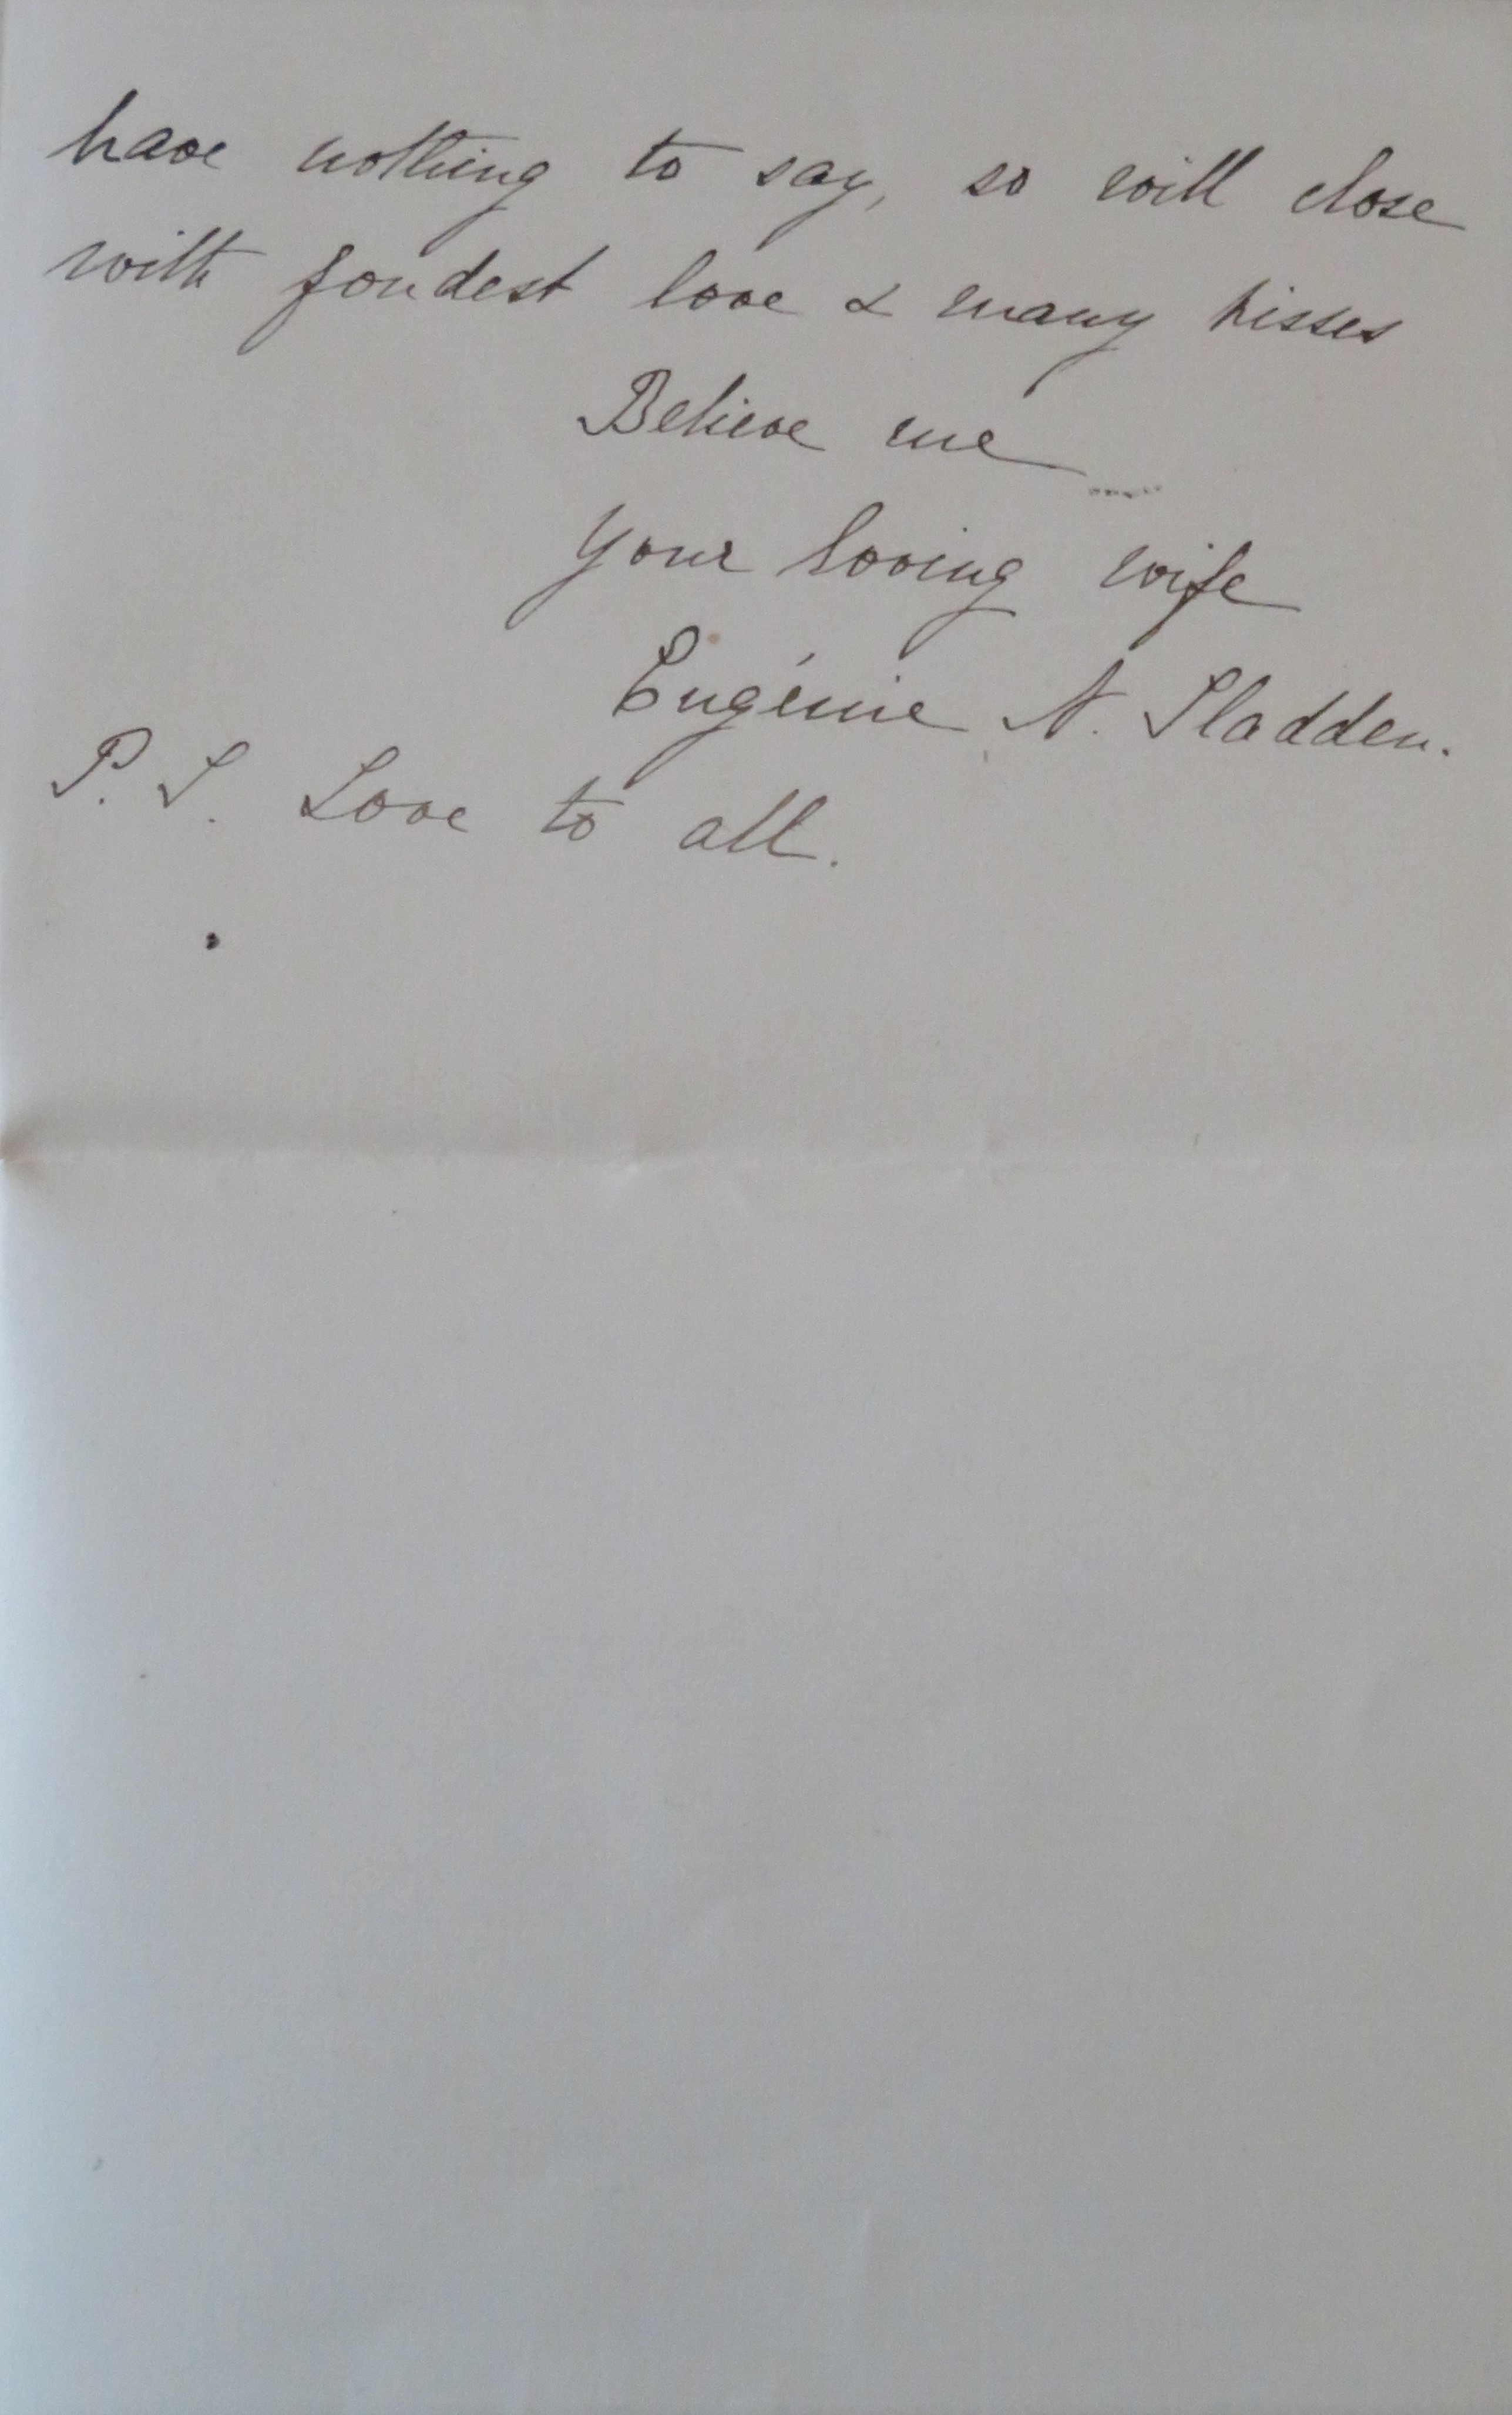 have nothing to say, so will close
with fondest love & many kisses
Believe me
Your loving wife
Eugénie N. Sladden.
P. S. Love to all.